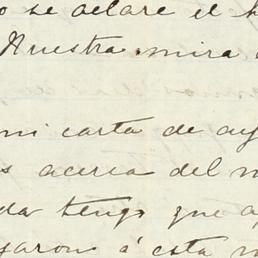 o se aclare el
Nuestra mira
mi carta de ay
s acerca del m
da tengo que a
garon á esta